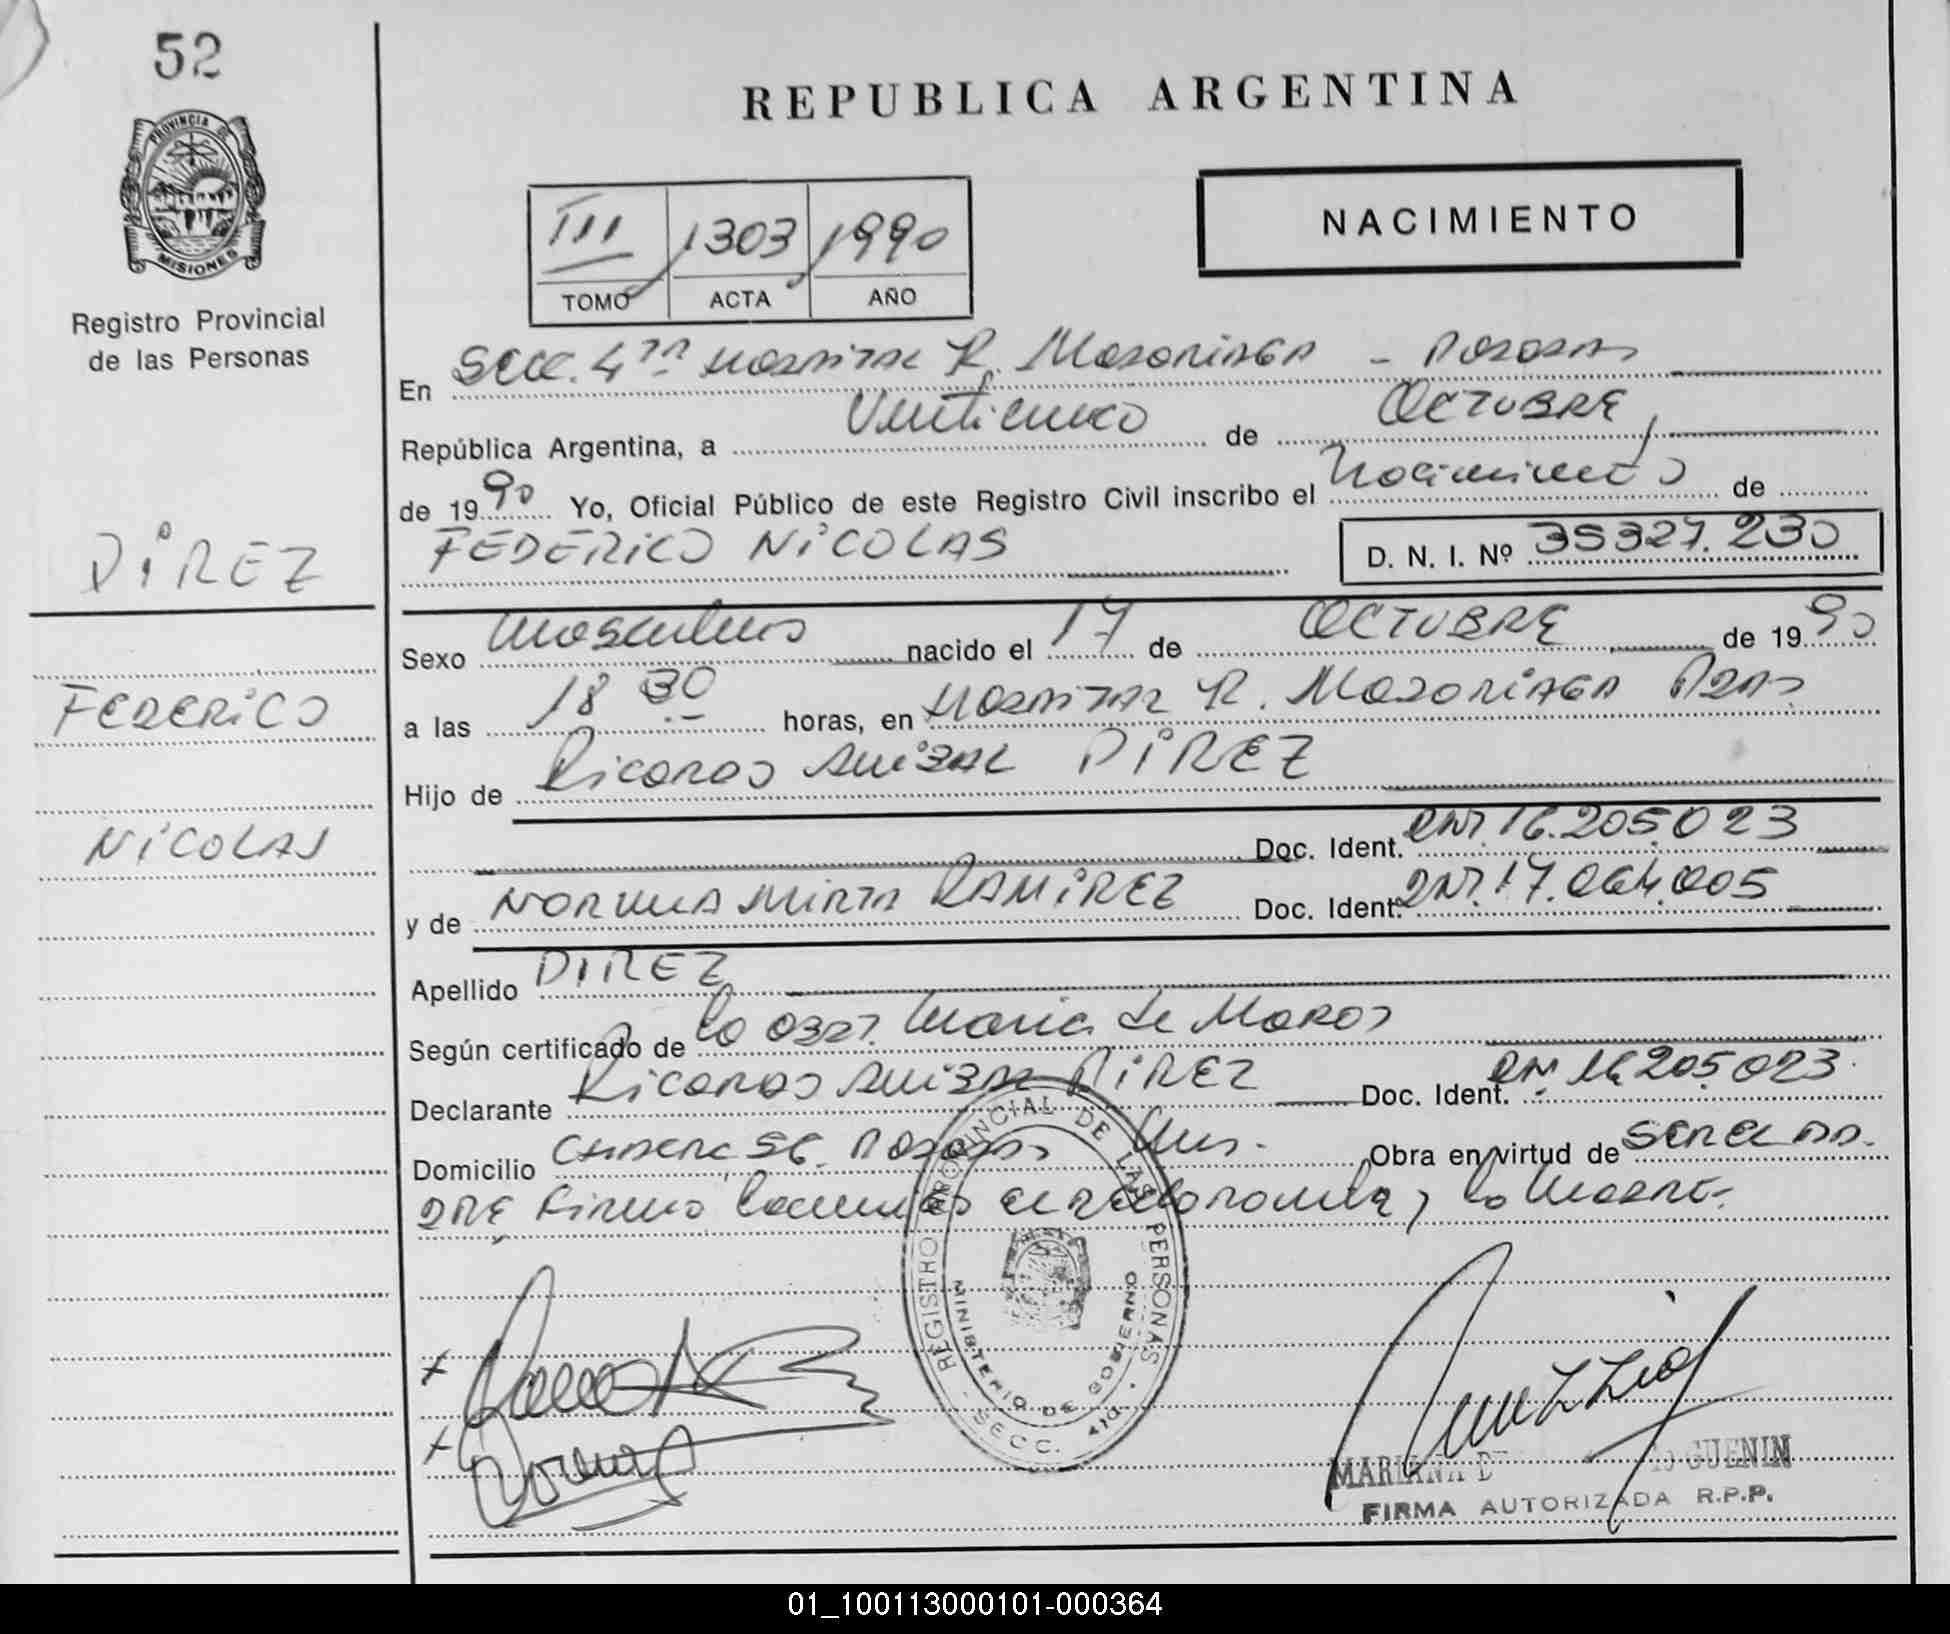 52
PROVINCIA DE
MISIONES
Registro Provincial
de las Personas
REPUBLICA ARGENTINA
NACIMIENTO
III 1303 1990
TOMO ACTA AÑO
En Secc. 4ta Hospital R. Madariaga - Posadas
República Argentina, a Veinticinco de OCTUBRE,
de 1990 Yo, Oficial Público de este Registro Civil inscribo el Nacimiento de
FEDERICO NICOLAS
D. N. I. Nº 35327.230
PIREZ
FEDERICO
NICOLAS
Sexo Masculino nacido el 17 de OCTUBRE de 1990
a las 18 30 horas, en Hospital R. Madariaga Pdas
Hijo de Ricardo Anibal PIREZ
Doc. Ident. DNI. 16.205.023
y de NORMA MIRTA RAMIREZ Doc. Ident. DNI. 17.064.005
Apellido PIREZ
Según certificado de la Obst. Maria de
Declarante Ricardo Anibal PIREZ Doc. Ident. DNI. 16.205.023.
Domicilio 56. Posadas Mnes. Obra en virtud de
QUE Firma el declarante, y la Madre.
REGISTRO PROVINCIAL DE LAS PERSONAS
MINISTERIO DE GOBIERNO
- SECC. 4ta. -
GUENIN
FIRMA AUTORIZADA R.P.P.
01_100113000101-000364